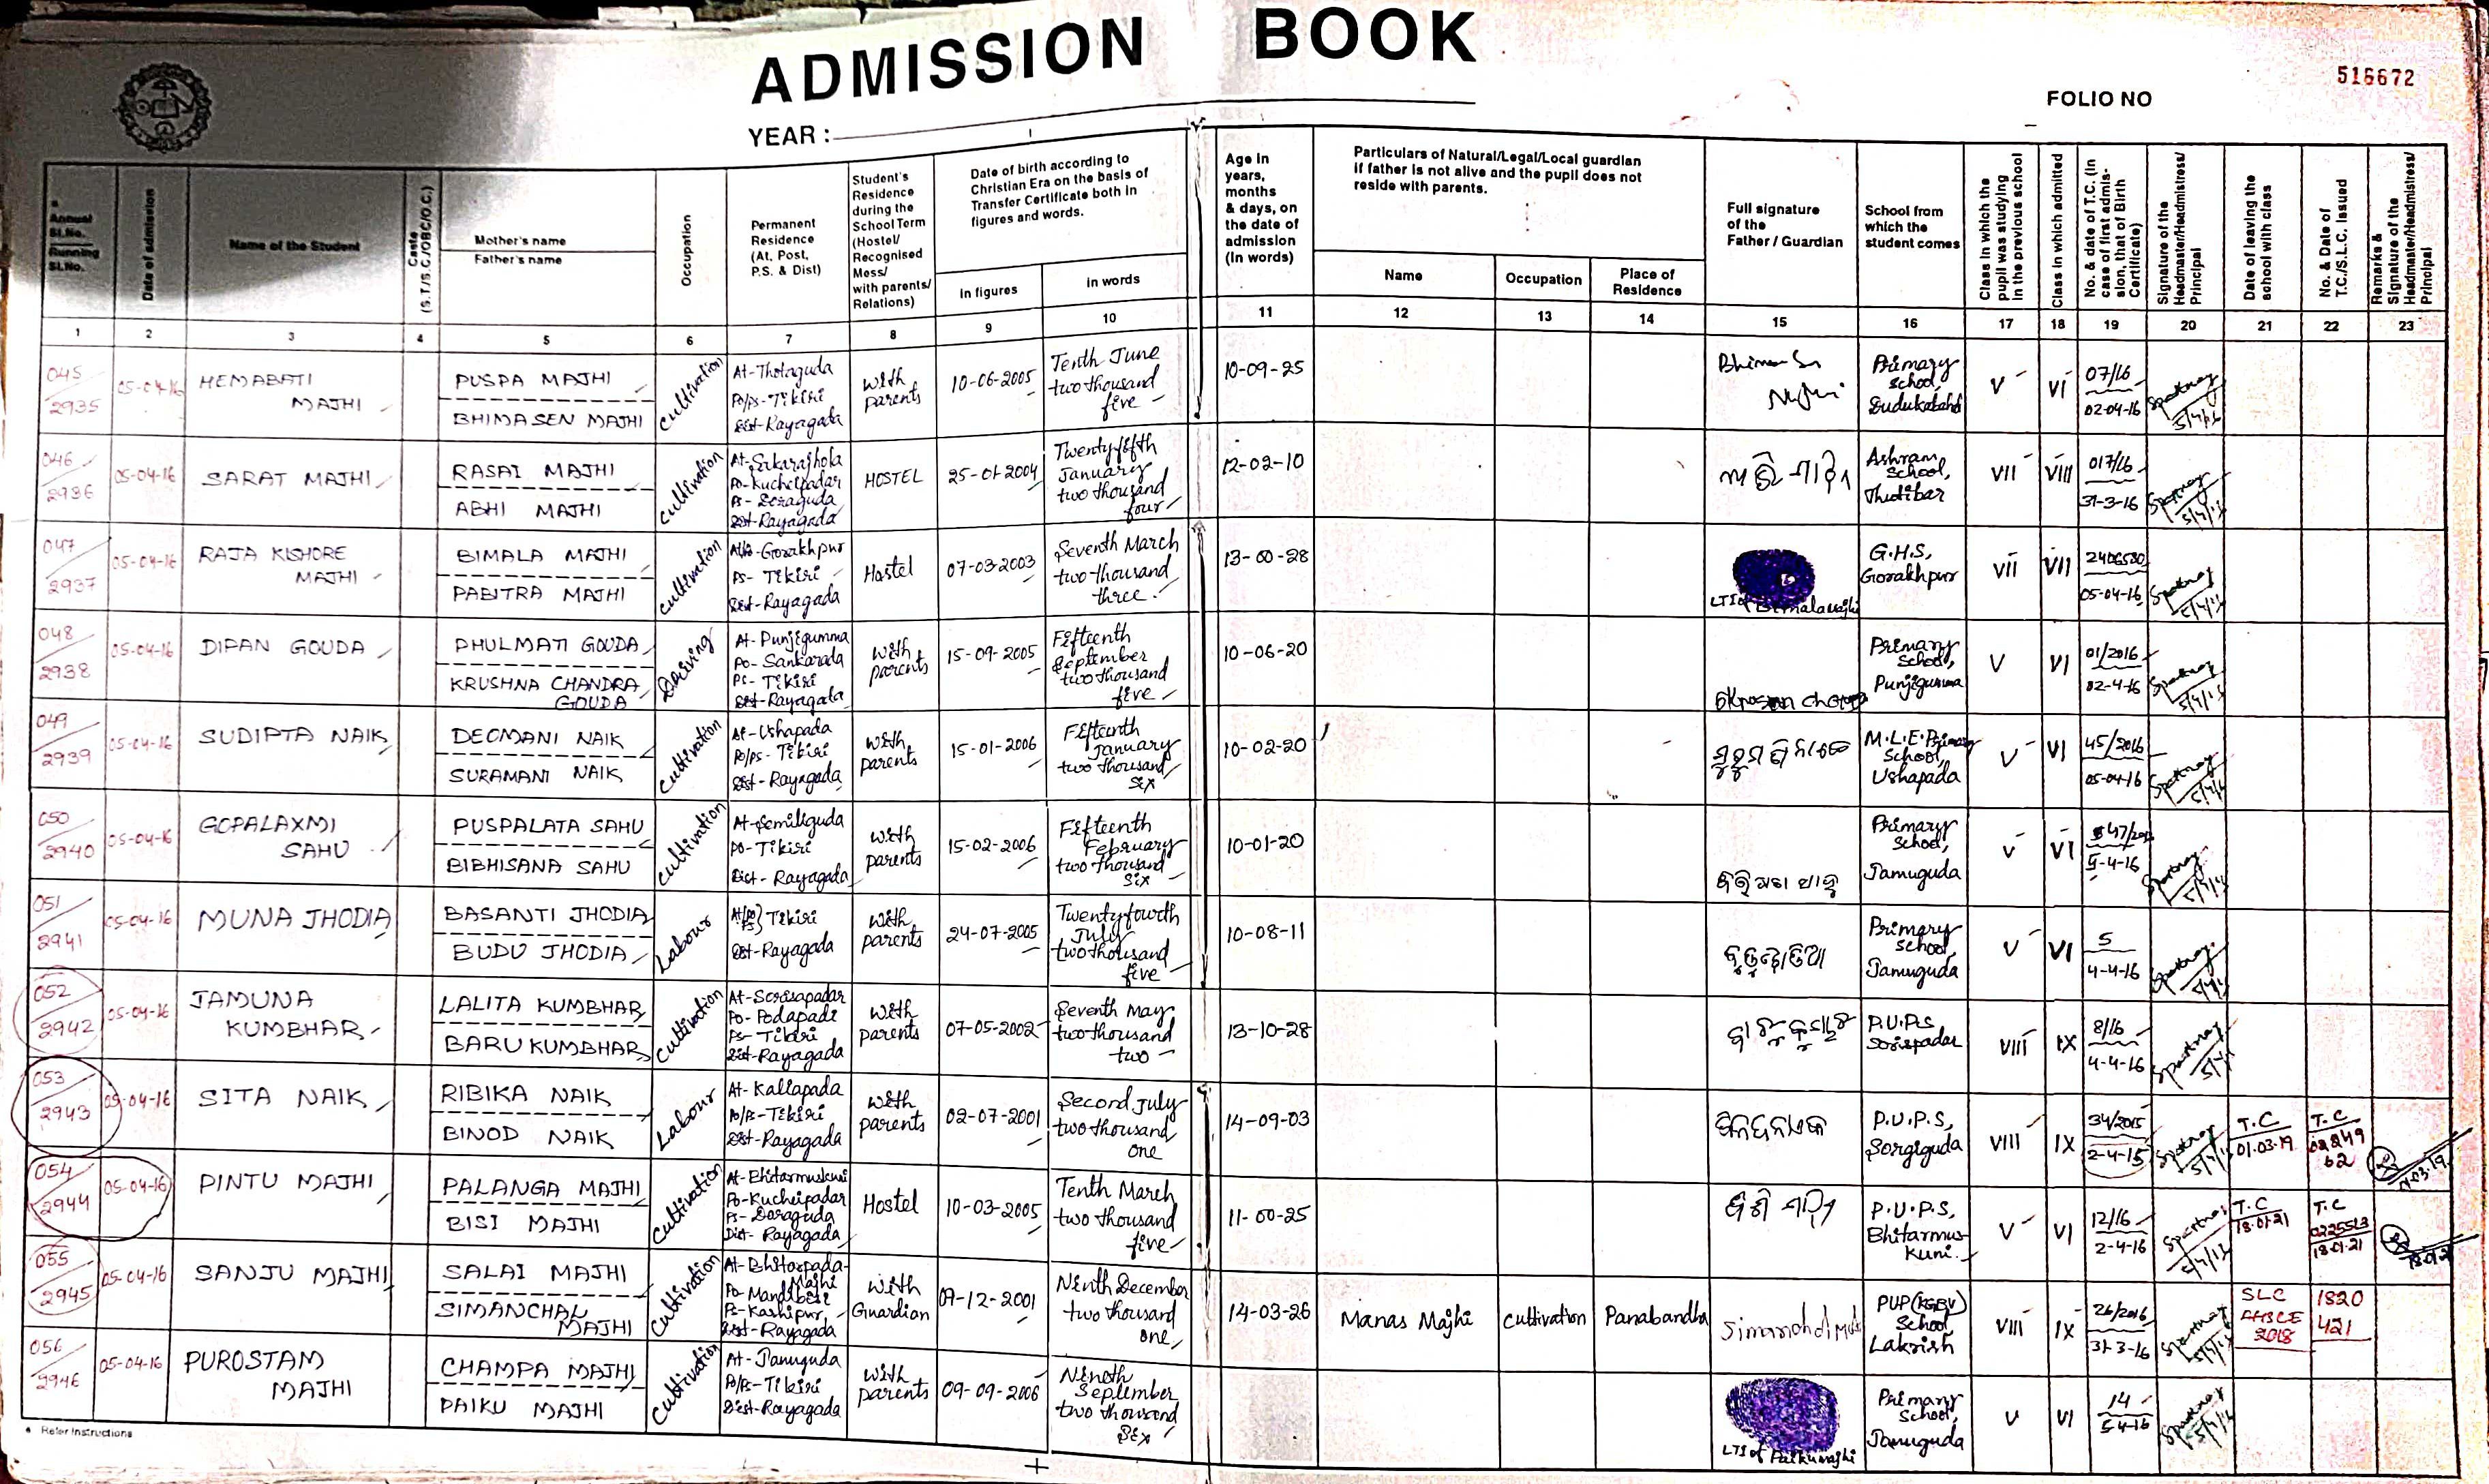 ADMISSION BOOK
516672
FOLIO NO
YEAR :
Annual Sl.No. Running Sl.No.
Date of admission
Name of the Student
Caste (S.T/S.C./OBC/O.C.)
Mother's name
Father's name
Occupation
Permanent Residence (At, Post, P.S. & Dist)
Student's Residence during the School Term (Hostel/ Recognised Mess/ with parents/ Relations)
Date of birth according to Christian Era on the basis of Transfer Certificate both in figures and words.
In figures
In words
Age in years, months & days, on the date of admission (In words)
Particulars of Natural/Legal/Local guardian if father is not alive and the pupil does not reside with parents.
Name
Occupation
Place of Residence
Full signature of the Father / Guardian
School from which the student comes
Class in which the pupil was studying in the previous school
Class in which admitted
No. & date of T.C. (in case of first admission, that of Birth Certificate)
Signature of the Headmaster/Headmistress/ Principal
Date of leaving the school with class
No. & Date of T.C./S.L.C. Issued
Remarks & Signature of the Headmaster/Headmistress/ Principal
1 2 3 4 5 6 7 8 9 10 11 12 13 14 15 16 17 18 19 20 21 22 23
045 2935 05-04-16 HEMABATI MAJHI PUSPA MAJHI BHIMASEN MAJHI Cultivation At-Thotaguda Po/Ps-Tikiri Dist-Rayagada with parents 10-06-2005 Tenth June two thousand five 10-09-25 Primary School, V VI 07/16 02-04-16
046 2936 05-04-16 SARAT MAJHI RASAI MAJHI ABHI MAJHI Cultivation Po-Kucheipadar Dist-Rayagada HOSTEL 25-01-2004 Twentyfifth January two thousand four 12-02-10 Ashram School, VII VIII 017/16 31-3-16
047 2937 05-04-16 RAJA KISHORE MAJHI BIMALA MAJHI PABITRA MAJHI Cultivation Gorakhpur Ps-Tikiri Dist-Rayagada Hostel 07-03-2003 Seventh March two thousand three 13-00-28 LTI of Bimala Majhi G.H.S, Gorakhpur VII VII 2406580 05-04-16
048 2938 05-04-16 DIPAN GOUDA PHULMATI GOUDA KRUSHNA CHANDRA GOUDA Driving At-Punjigumma Po-Sankarada Ps-Tikiri Dist-Rayagada with parents 15-09-2005 Fifteenth September two thousand five 10-06-20 Primary School, Punjigumma V VI 01/2016 02-4-16
049 2939 05-04-16 SUDIPTA NAIK DEOMANI NAIK SURAMANI NAIK Cultivation At-Ushapada Po/Ps-Tikiri Dist-Rayagada with parents 15-01-2006 Fifteenth January two thousand six 10-02-20 M.L.E.Primary School, Ushapada V VI 45/2016 05-04-16
050 2940 05-04-16 GOPALAXMI SAHU PUSPALATA SAHU BIBHISANA SAHU Cultivation At-Semiliguda Po-Tikiri Dist-Rayagada with parents 15-02-2006 Fifteenth February two thousand six 10-01-20 Primary School, Jamuguda V VI 5-4-16
051 2941 05-04-16 MUNA JHODIA BASANTI JHODIA BUDU JHODIA Labour Tikiri Dist-Rayagada with parents 24-07-2005 Twentyfourth July two thousand five 10-08-11 Primary School, Jamuguda V VI 5 4-4-16
052 2942 05-04-16 JAMUNA KUMBHAR LALITA KUMBHAR BARU KUMBHAR Cultivation At-Sorisapadar Po-Podapadi Ps-Tikiri Dist-Rayagada with parents 07-05-2002 Seventh May two thousand two 13-10-28 P.U.P.S Sorispadar VIII IX 8/16 4-4-16
053 2943 05-04-16 SITA NAIK RIBIKA NAIK BINOD NAIK Labour At-Kallapada Po/Ps-Tikiri Dist-Rayagada with parents 02-07-2001 Second July two thousand one 14-09-03 P.U.P.S, Sorgiguda VIII IX 34/2015 2-4-15 T.C 01.03.19 T.C
054 2944 05-04-16 PINTU MAJHI PALANGA MAJHI BISI MAJHI Cultivation At-Bhitarmuskuni Po-Kucheipadar Ps-Doraguda Dist-Rayagada Hostel 10-03-2005 Tenth March two thousand five 11-00-25 P.U.P.S, Bhitarmuskuni V VI 12/16 2-4-16 T.C 18.01.21 T.C 18.01.21
055 2945 05-04-16 SANJU MAJHI SALAI MAJHI SIMANCHAL MAJHI Cultivation Ps-Kashipur, Dist-Rayagada with Guardian 09-12-2001 Ninth December two thousand one 14-03-26 Manas Majhi cultivation Panabandha PUP(KGBV) School Lakrish VIII IX 26/2016 31-3-16 SLC AHSCE 2018 1820 421
056 2946 05-04-16 PUROSTAM MAJHI CHAMPA MAJHI PAIKU MAJHI Cultivation At-Jamuguda Po/Ps-Tikiri Dist-Rayagada with parents 09-09-2006 Nineth September two thousand six LTI of Paiku Majhi Primary School, Jamuguda V VI 14 5-4-16
* Refer Instructions